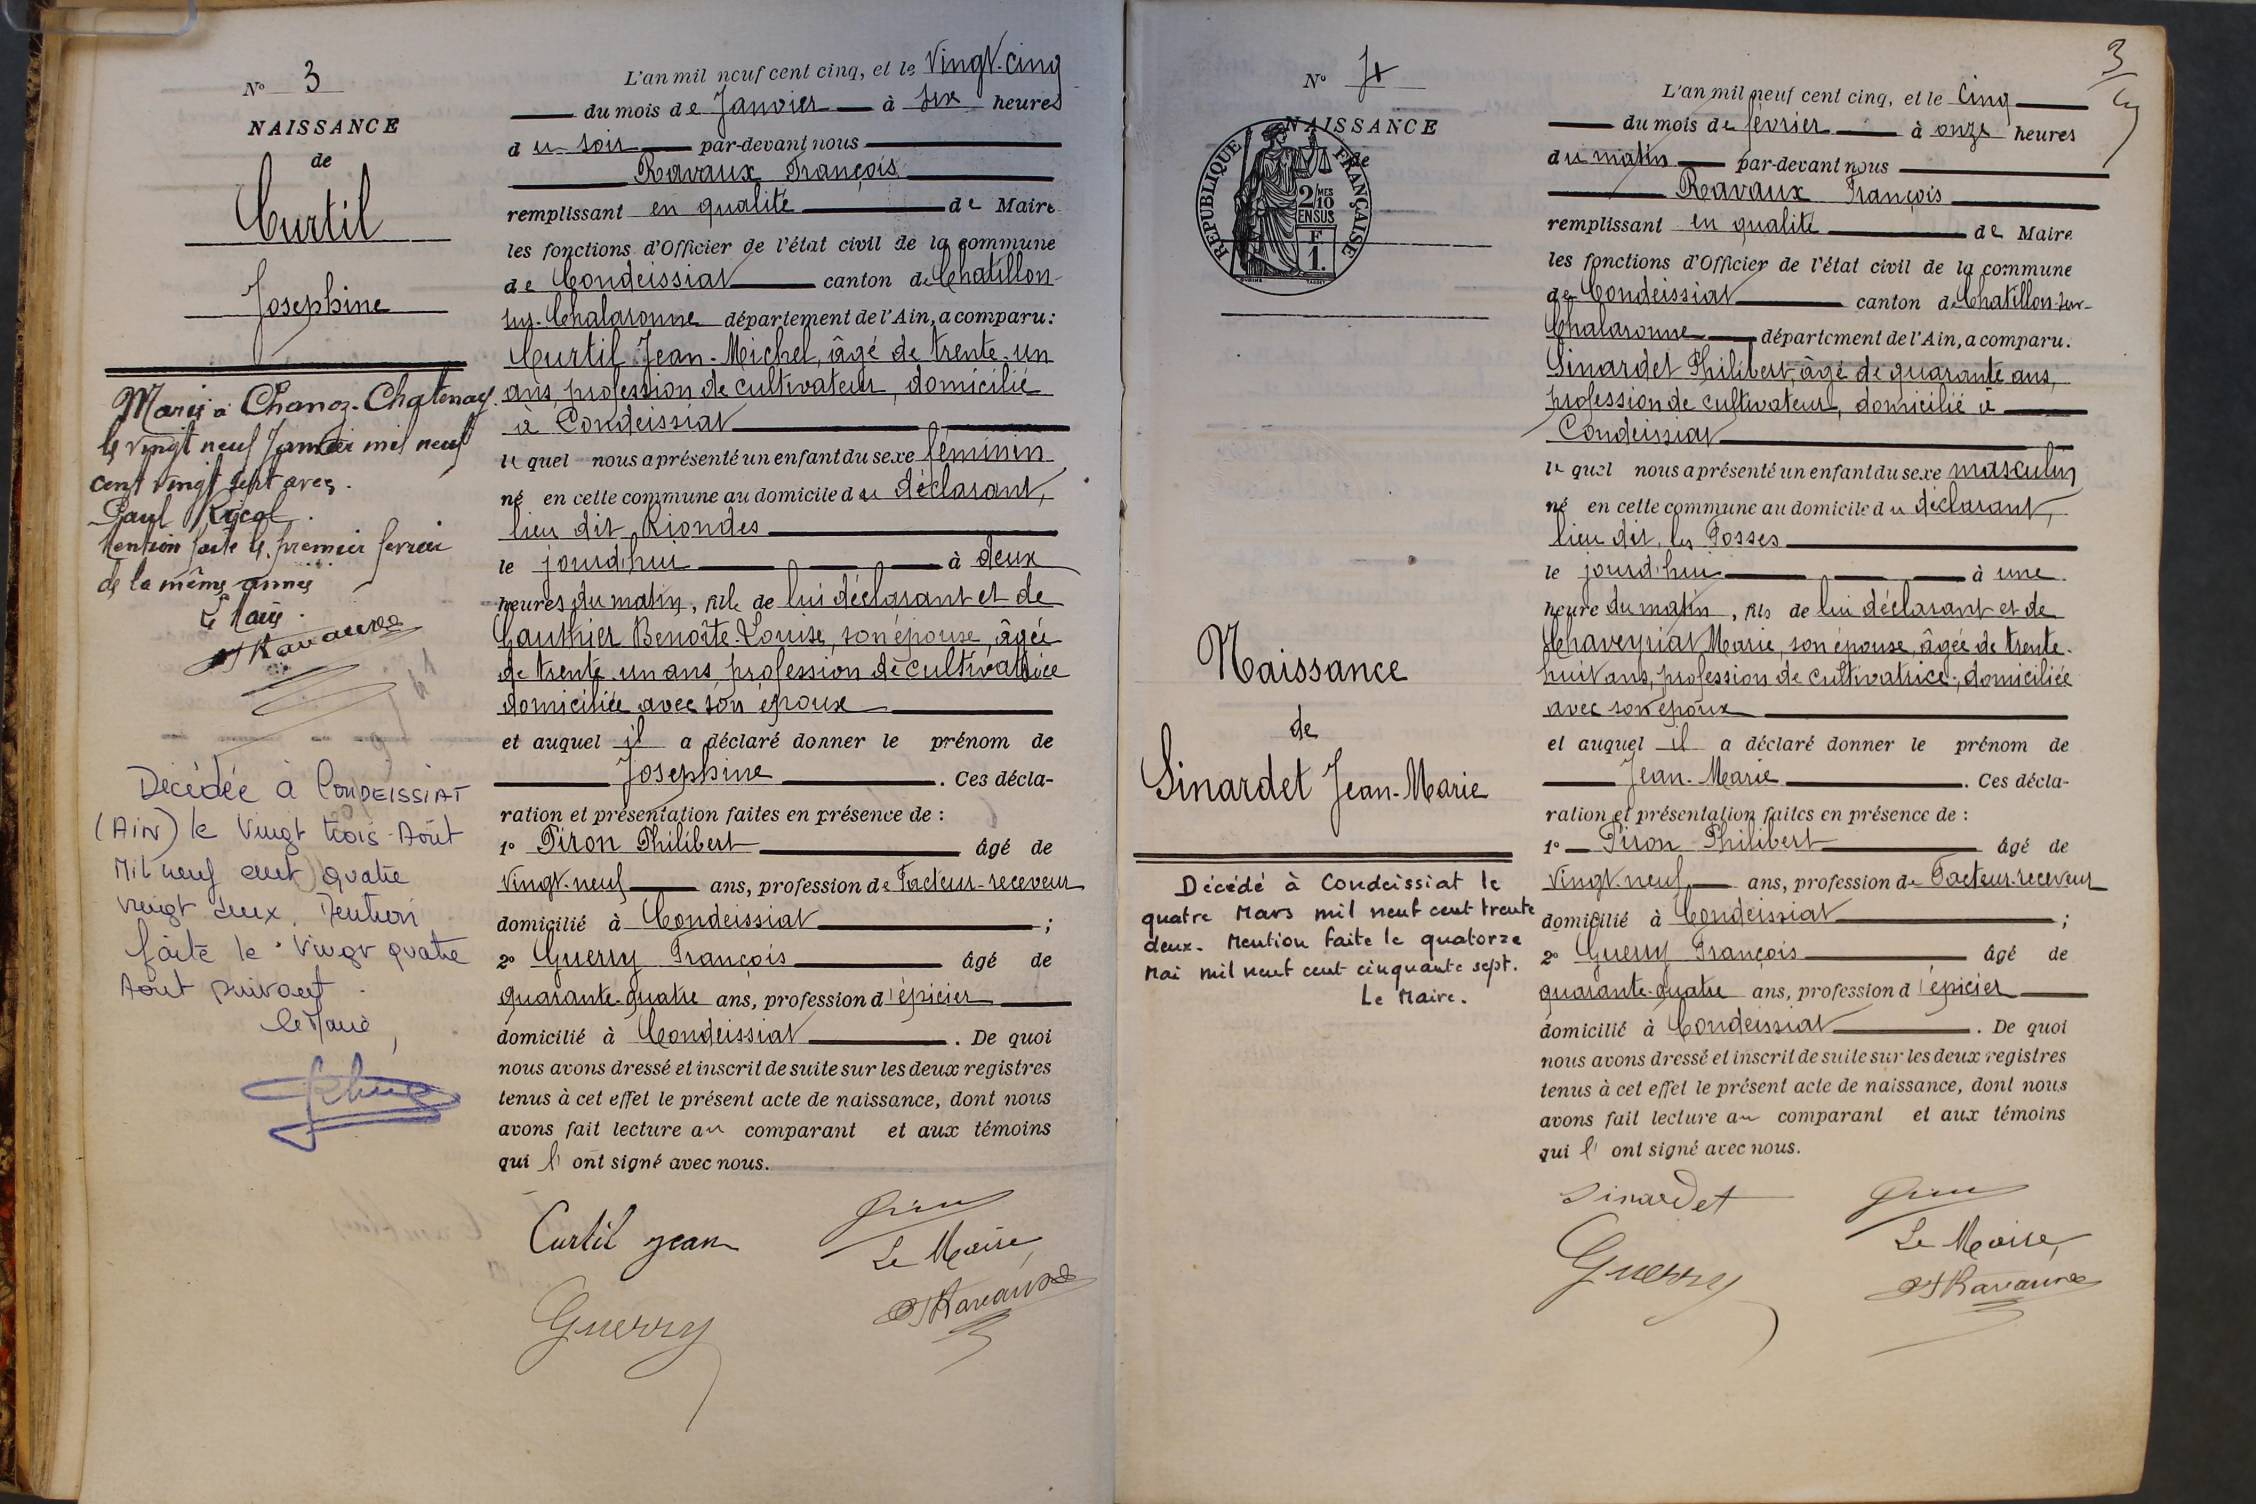 N° 3
NAISSANCE
de
Curtil
Josephine
Mariée à Chanoz-Chatenay
le vingt neuf Janvier mil neuf
cent vingt sept avec
Paul
Mention faite le premier fevrier
de la même année
Le Maire
Ravaux
Décédée à CONDEISSIAT
(AIN) le Vingt trois Août
Mil neuf cent quatre
vingt deux. Mention
faite le Vingt quatre
Août suivant.
Le Maire,
L'an mil neuf cent cinq, et le Vingt-cinq
du mois de Janvier à six heures
du soir par-devant nous
Ravaux François
remplissant en qualité de Maire
les fonctions d'Officier de l'état civil de la commune
de Condeissiat canton de Chatillon-
sur-Chalaronne département de l'Ain, a comparu:
Curtil Jean-Michel, âgé de trente-un
ans, profession de cultivateur, domicilié
à Condeissiat
lequel nous a présenté un enfant du sexe féminin
né en cette commune au domicile du déclarant,
lieu dit Riondes
le jourd'hui à deux
heures du matin, fille de lui déclarant et de
Gauthier Benoîte-Louise, son épouse, âgée
de trente-un ans, profession de cultivatrice
domiciliée avec son époux
et auquel il a déclaré donner le prénom de
Josephine. Ces décla-
ration et présentation faites en présence de :
1° Piron Philibert âgé de
vingt-neuf ans, profession de Facteur-receveur
domicilié à Condeissiat ;
2° Guerry François âgé de
quarante-quatre ans, profession d'épicier
domicilié à Condeissiat. De quoi
nous avons dressé et inscrit de suite sur les deux registres
tenus à cet effet le présent acte de naissance, dont nous
avons fait lecture au comparant et aux témoins
qui l'ont signé avec nous.
Curtil Jean
Piron
Le Maire,
Guerry
Ravaux
3
N° 4
NAISSANCE
de
REPUBLIQUE FRANÇAISE
2/10 MES
EN SUS
F
1.
Naissance
de
Sinardet Jean-Marie
Décédé à Condeissiat le
quatre Mars mil neuf cent trente
deux. Mention faite le quatorze
Mai mil neuf cent cinquante sept.
Le Maire.
L'an mil neuf cent cinq, et le Cinq
du mois de février à onze heures
du matin par-devant nous
Ravaux François
remplissant en qualité de Maire
les fonctions d'Officier de l'état civil de la commune
de Condeissiat canton de Chatillon-sur-
Chalaronne département de l'Ain, a comparu.
Sinardet Philibert, âgé de quarante ans,
profession de cultivateur, domicilié à
Condeissiat
lequel nous a présenté un enfant du sexe masculin
né en cette commune au domicile du déclarant,
lieu dit, les Fosses
le jourd'hui à une
heure du matin, fils de lui déclarant et de
Chaveyriat Marie, son épouse, âgée de trente-
huit ans, profession de cultivatrice, domiciliée
avec son époux
et auquel il a déclaré donner le prénom de
Jean-Marie. Ces décla-
ration et présentation faites en présence de :
1° Piron Philibert âgé de
vingt-neuf ans, profession de Facteur-receveur
domicilié à Condeissiat ;
2° Guerry François âgé de
quarante-quatre ans, profession d'épicier
domicilié à Condeissiat. De quoi
nous avons dressé et inscrit de suite sur les deux registres
tenus à cet effet le présent acte de naissance, dont nous
avons fait lecture au comparant et aux témoins
qui l'ont signé avec nous.
Sinardet
Piron
Le Maire,
Guerry
Ravaux